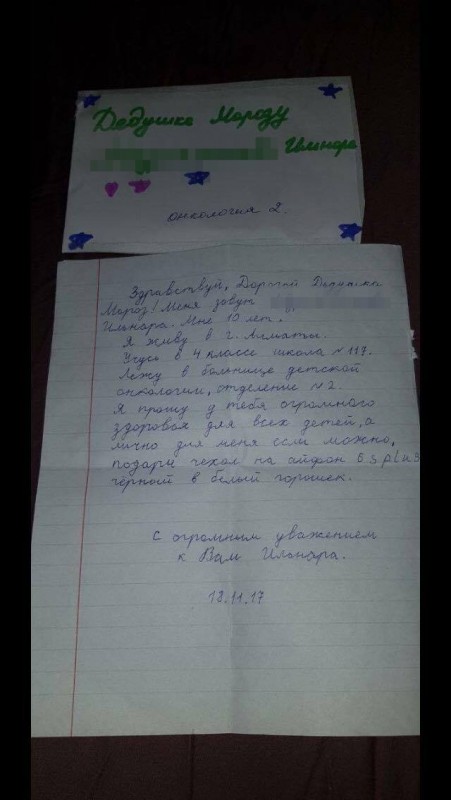 Дедушке Морозу
Ильнара
онкология 2.
Здравствуй, Дорогой Дедушка
Мороз! Меня зовут
Ильнара. Мне 10 лет.
Я живу в г. Алматы.
Учусь в 4 классе школа №117.
Лежу в больнице детской
онкологии, отделение №2.
Я прошу у тебя огромного
здоровья для всех детей, а
лично для меня если можно,
подари чехол на айфон 6 s plus
чёрный в белый горошек.
С огромным уважением
к Вам Ильнара.
18.11.17